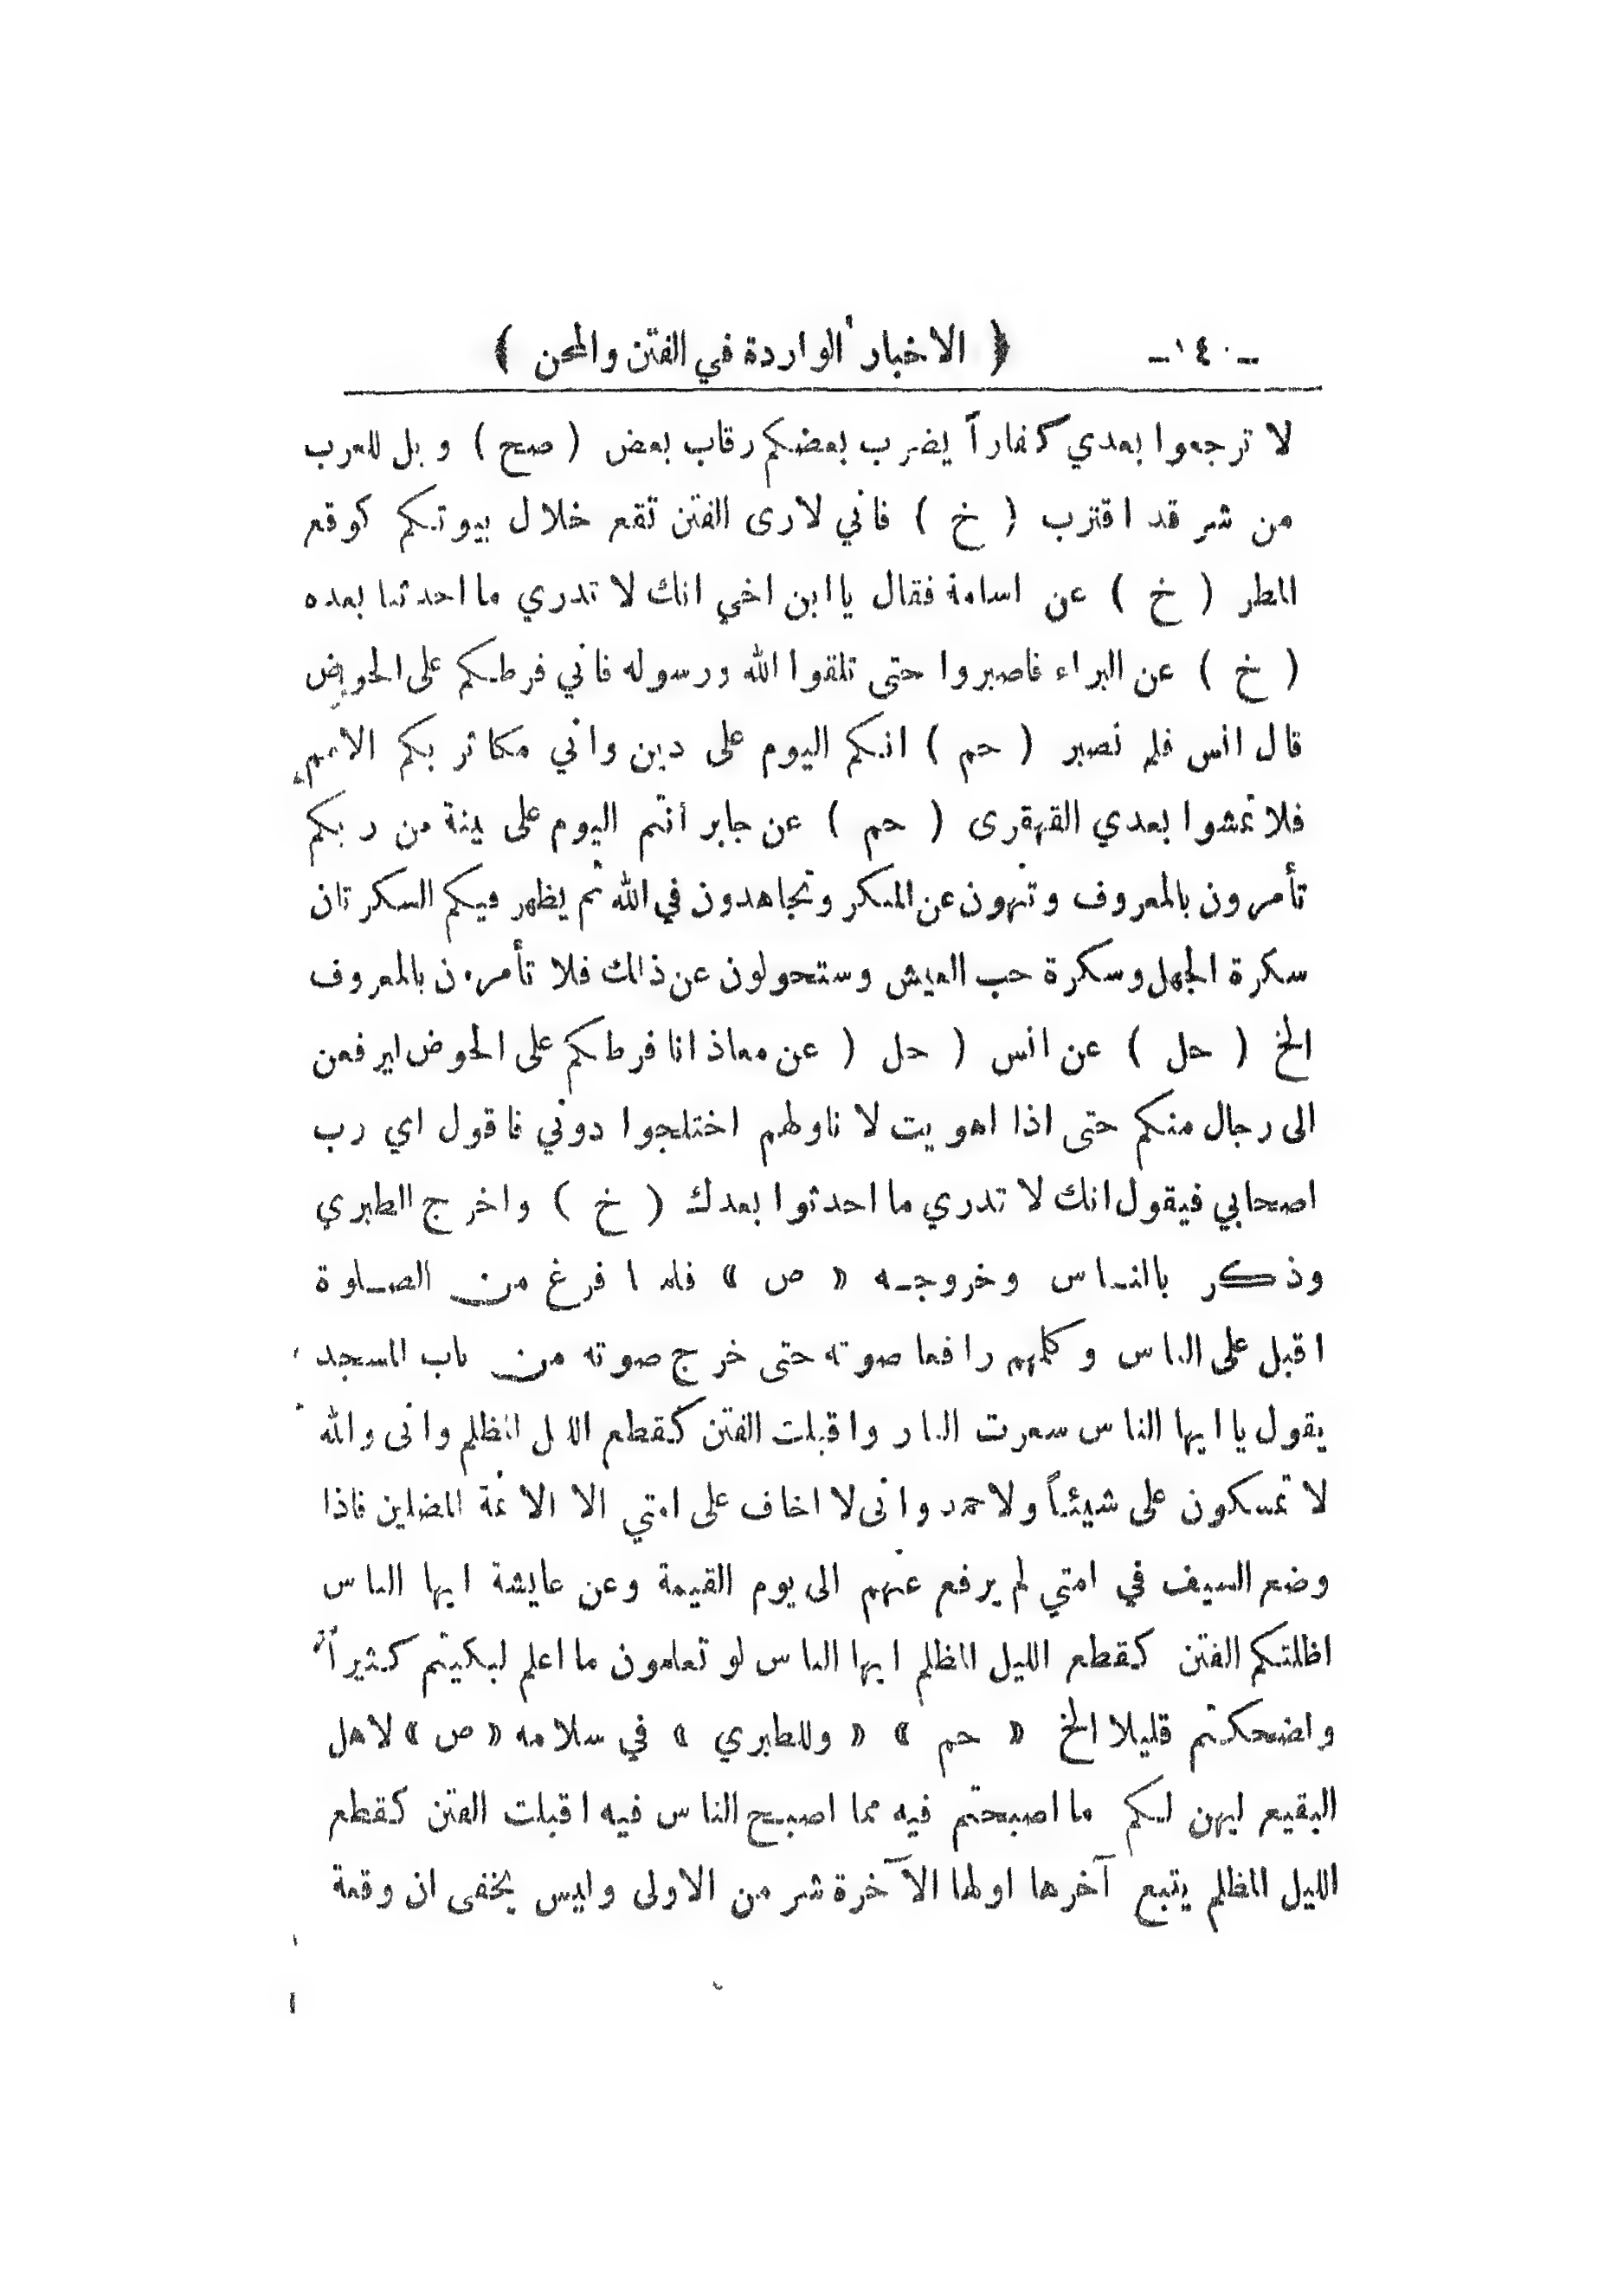 -١٤٠- ﴿ الاخبار الواردة في الفتن والمحن ﴾
لا ترجعوا بعدي كفاراً يضرب بعضكم رقاب بعض ( صح ) ويل للعرب
من شر قد اقترب ( خ ) فاني لارى الفتن تقع خلال بيوتكم كوقع
المطر ( خ ) عن اسامة فقال يا ابن اخي انك لا تدري ما احدثنا بعده
( خ ) عن البراء فاصبروا حتى تلقوا الله ورسوله فاني فرطكم على الحوض
قال انس فلم نصبر ( حم ) انكم اليوم على دين واني مكاثر بكم الامم
فلا تمشوا بعدي القهقرى ( حم ) عن جابر أنتم اليوم على بينة من ربكم
تأمرون بالمعروف وتنهون عن المنكر وتجاهدون في الله ثم يظهر فيكم السكرتان
سكرة الجهل وسكرة حب العيش وستحولون عن ذلك فلا تأمرون بالمعروف
الخ ( حل ) عن انس ( حل ( عن معاذ انا فرطكم على الحوض ليرفعن
الى رجال منكم حتى اذا اهويت لا ناولهم اختلجوا دوني فاقول اي رب
اصحابي فيقول انك لا تدري ما احدثوا بعدك ( خ ) واخرج الطبري
وذكر بالناس وخروجه « ص » فلما فرغ من الصلوة
اقبل على الناس وكلمهم رافعا صوته حتى خرج صوته من باب المسجد
يقول يا ايها الناس سعرت النار واقبلت الفتن كقطع الليل المظلم وانى والله
لا تمسكون على شيئاً ولاحمد وانى لا اخاف على امتي الا الائمة المضلين فاذا
وضع السيف في امتي لم يرفع عنهم الى يوم القيمة وعن عايشة ايها الناس
اظلتكم الفتن كقطع الليل المظلم ايها الناس لو تعلمون ما اعلم لبكيتم كثيراً
واضحكتم قليلا الخ « حم » « وللطبري » في سلامه « ص » لاهل
البقيع ليهن لكم ما اصبحتم فيه مما اصبح الناس فيه اقبلت الفتن كقطع
الليل المظلم يتبع آخرها اولها الآخرة شر من الاولى وليس يخفى ان وقعة